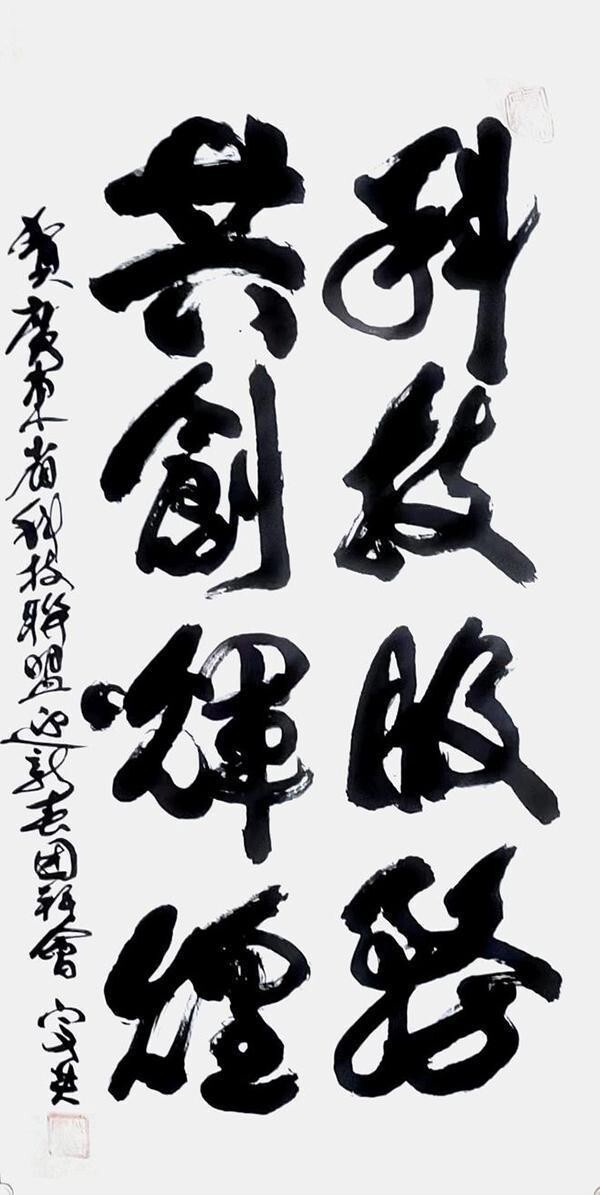 科技服務
共創輝煌
賀廣東省科技聯盟迎新春团拜會